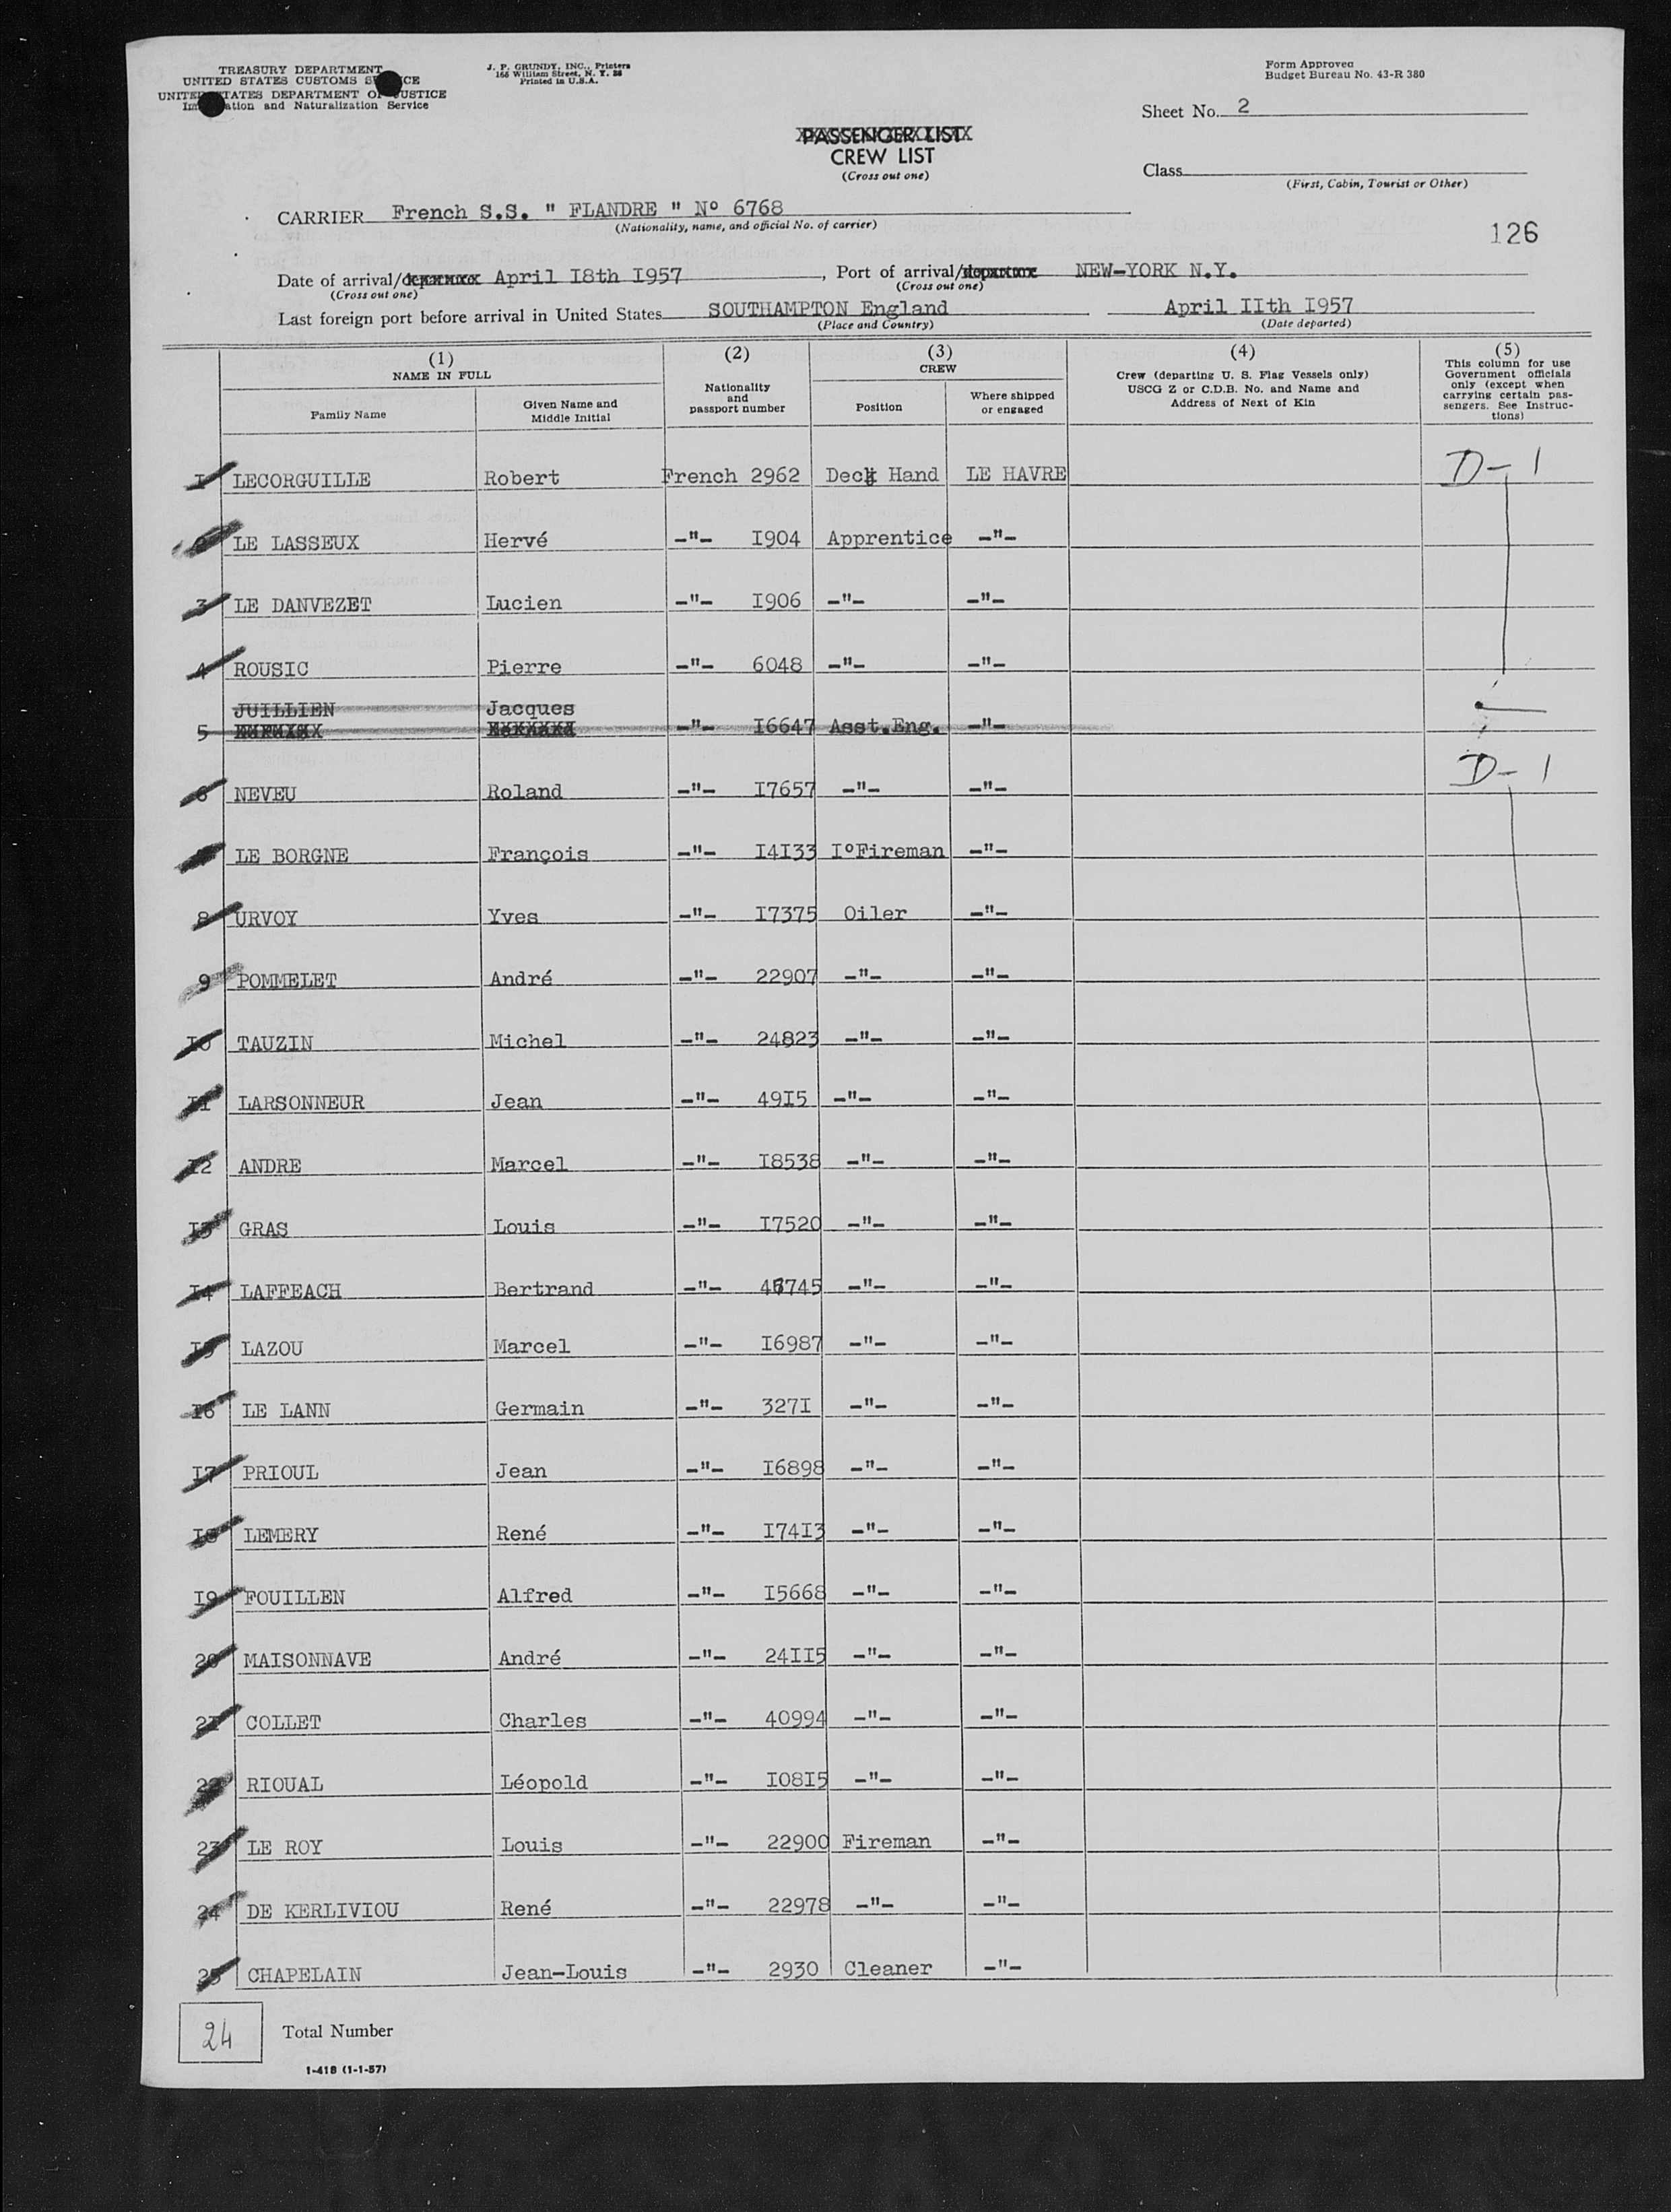 TREASURY DEPARTMENT
UNITED STATES CUSTOMS SERVICE
UNITED STATES DEPARTMENT OF JUSTICE
Immigration and Naturalization Service
J. P. GRUNDY, INC., Printers
Printed in U.S.A.
Form Approved
Budget Bureau No. 43-R 380
Sheet No. 2
PASSENGER LIST
CREW LIST
(Cross out one)
Class
(First, Cabin, Tourist or Other)
CARRIER French S.S. " FLANDRE " Nº 6768
(Nationality, name, and official No. of carrier)
126
Date of arrival/departure April I8th I957, Port of arrival/departure NEW-YORK N.Y.
(Cross out one) (Cross out one)
Last foreign port before arrival in United States SOUTHAMPTON England April IIth I957
(Place and Country) (Date departed)
(1) NAME IN FULL
Family Name
Given Name and Middle Initial
(2)
Nationality and passport number
(3) CREW
Position
Where shipped or engaged
(4)
Crew (departing U. S. Flag Vessels only)
USCG Z or C.D.B. No. and Name and
Address of Next of Kin
(5)
This column for use
Government officials
only (except when
carrying certain pas-
sengers. See Instruc-
tions)
I LECORGUILLE Robert French 2962 Deck Hand LE HAVRE D-1
LE LASSEUX Hervé -"- I904 Apprentice -"-
3 LE DANVEZET Lucien -"- I906 -"- -"-
4 ROUSIC Pierre -"- 6048 -"- -"-
JUILLIEN Jacques
5 -"- I6647 Asst.Eng. -"-
6 NEVEU Roland -"- I7657 -"- -"- D-1
LE BORGNE François -"- I4I33 IºFireman -"-
8 URVOY Yves -"- I7375 Oiler -"-
9 POMMELET André -"- 22907 -"- -"-
I0 TAUZIN Michel -"- 24823 -"- -"-
II LARSONNEUR Jean -"- 49I5 -"- -"-
I2 ANDRE Marcel -"- I8538 -"- -"-
I3 GRAS Louis -"- I7520 -"- -"-
I4 LAFFEACH Bertrand -"- -"- -"-
I5 LAZOU Marcel -"- I6987 -"- -"-
I6 LE LANN Germain -"- 327I -"- -"-
I7 PRIOUL Jean -"- I6898 -"- -"-
I8 LEMERY René -"- I74I3 -"- -"-
I9 FOUILLEN Alfred -"- I5668 -"- -"-
20 MAISONNAVE André -"- 24II5 -"- -"-
2I COLLET Charles -"- 40994 -"- -"-
22 RIOUAL Léopold -"- I08I5 -"- -"-
23 LE ROY Louis -"- 22900 Fireman -"-
24 DE KERLIVIOU René -"- 22978 -"- -"-
25 CHAPELAIN Jean-Louis -"- 2930 Cleaner -"-
24 Total Number
1-418 (1-1-57)